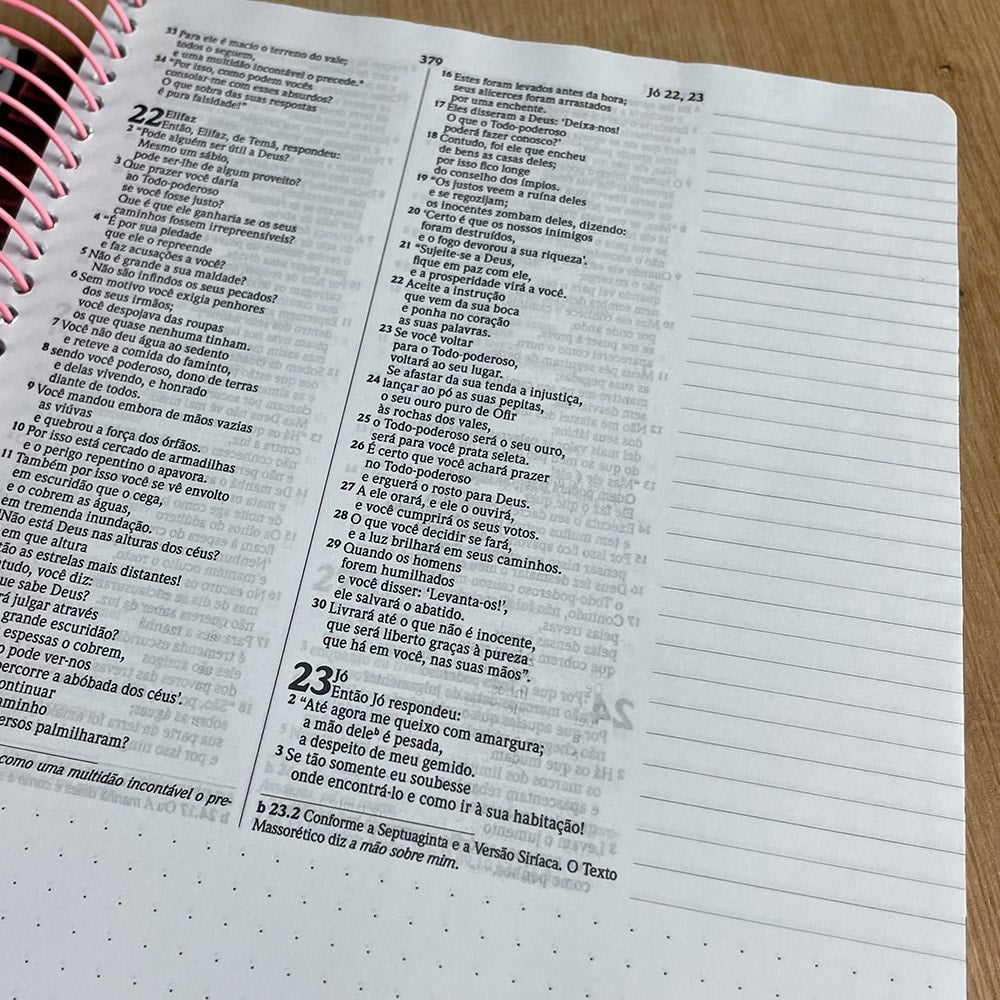 33 Para ele é macio o terreno do vale;
todos o seguem,
e uma multidão incontável o precede.ᵃ
34 "Por isso, como podem vocês
consolar-me com esses absurdos?
O que sobra das suas respostas
é pura falsidade!"
22 Elifaz
Então, Elifaz, de Temã, respondeu:
2 "Pode alguém ser útil a Deus?
Mesmo um sábio,
pode ser-lhe de algum proveito?
3 Que prazer você daria
ao Todo-poderoso
se você fosse justo?
Que é que ele ganharia se os seus
caminhos fossem irrepreensíveis?
4 "É por sua piedade
que ele o repreende
e faz acusações a você?
5 Não é grande a sua maldade?
Não são infindos os seus pecados?
6 Sem motivo você exigia penhores
dos seus irmãos;
você despojava das roupas
os que quase nenhuma tinham.
7 Você não deu água ao sedento
e reteve a comida do faminto,
8 sendo você poderoso, dono de terras
e delas vivendo, e honrado
diante de todos.
9 Você mandou embora de mãos vazias
as viúvas
e quebrou a força dos órfãos.
10 Por isso está cercado de armadilhas
e o perigo repentino o apavora.
11 Também por isso você se vê envolto
em escuridão que o cega,
e o cobrem as águas,
em tremenda inundação.
"Não está Deus nas alturas dos céus?
em que altura
tão as estrelas mais distantes!
tudo, você diz:
ue sabe Deus?
rá julgar através
grande escuridão?
espessas o cobrem,
o pode ver-nos
percorre a abóbada dos céus'.
ontinuar
aminho
ersos palmilharam?
como uma multidão incontável o pre-
379
Jó 22, 23
16 Estes foram levados antes da hora;
seus alicerces foram arrastados
por uma enchente.
17 Eles disseram a Deus: 'Deixa-nos!
O que o Todo-poderoso
poderá fazer conosco?'
18 Contudo, foi ele que encheu
de bens as casas deles;
por isso fico longe
do conselho dos ímpios.
19 "Os justos veem a ruína deles
e se regozijam;
os inocentes zombam deles, dizendo:
20 'Certo é que os nossos inimigos
foram destruídos,
e o fogo devorou a sua riqueza'.
21 "Sujeite-se a Deus,
fique em paz com ele,
e a prosperidade virá a você.
22 Aceite a instrução
que vem da sua boca
e ponha no coração
as suas palavras.
23 Se você voltar
para o Todo-poderoso,
voltará ao seu lugar.
Se afastar da sua tenda a injustiça,
24 lançar ao pó as suas pepitas,
o seu ouro puro de Ofir
às rochas dos vales,
25 o Todo-poderoso será o seu ouro,
será para você prata seleta.
26 É certo que você achará prazer
no Todo-poderoso
e erguerá o rosto para Deus.
27 A ele orará, e ele o ouvirá,
e você cumprirá os seus votos.
28 O que você decidir se fará,
e a luz brilhará em seus caminhos.
29 Quando os homens
forem humilhados
e você disser: 'Levanta-os!',
ele salvará o abatido.
30 Livrará até o que não é inocente,
que será liberto graças à pureza
que há em você, nas suas mãos".
23 Jó
Então Jó respondeu:
2 "Até agora me queixo com amargura;
a mão deleᵇ é pesada,
a despeito de meu gemido.
3 Se tão somente eu soubesse
onde encontrá-lo e como ir à sua habitação!
b 23.2 Conforme a Septuaginta e a Versão Siríaca. O Texto
Massorético diz a mão sobre mim.